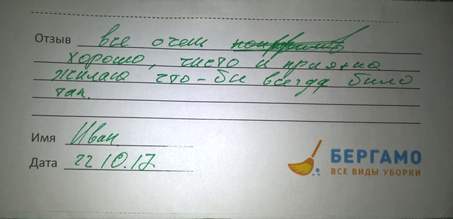 Отзыв все очен
хорошо, чисто и приятно
жилаю что-би всегда било
так.
Имя Иван
Дата 22 10.17.
БЕРГАМО
ВСЕ ВИДЫ УБОРКИ